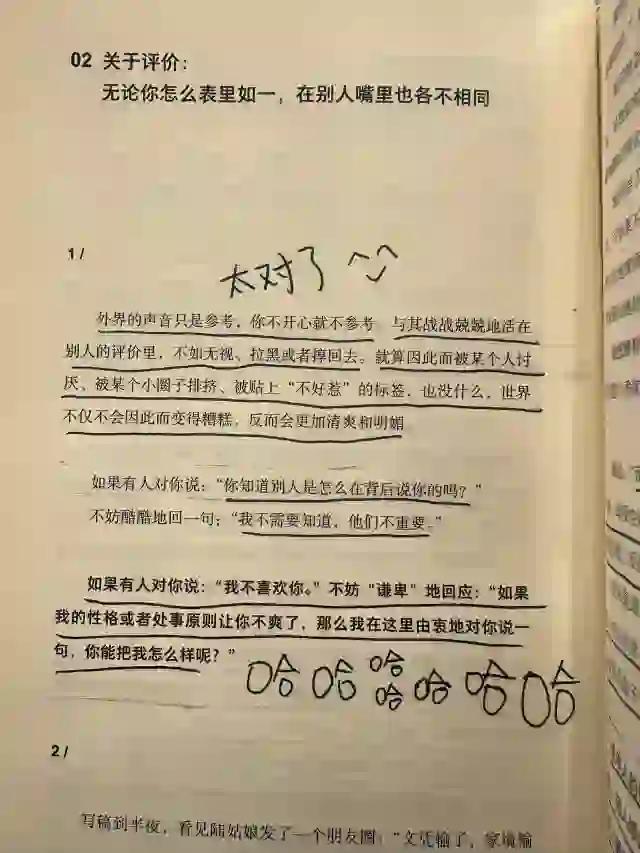 02 关于评价：
无论你怎么表里如一，在别人嘴里也各不相同
1/
太对了 ^‿^
外界的声音只是参考，你不开心就不参考 与其战战兢兢地活在
别人的评价里，不如无视、拉黑或者撑回去。就算因此而被某个人讨
厌、被某个小圈子排挤、被贴上“不好惹”的标签，也没什么，世界
不仅不会因此而变得糟糕，反而会更加清爽和明媚
如果有人对你说：“你知道别人是怎么在背后说你的吗？”
不妨酷酷地回一句：“我不需要知道，他们不重要。”
如果有人对你说：“我不喜欢你。”不妨“谦卑”地回应：“如果
我的性格或者处事原则让你不爽了，那么我在这里由衷地对你说一
句，你能把我怎么样呢？”
哈哈哈哈哈哈哈
2/
写稿到半夜，看见陆姑娘发了一个朋友圈：“文凭输了，家境输